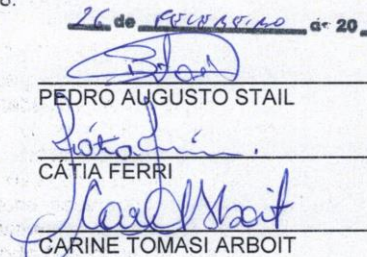 26 de FEVEREIRO de 20
PEDRO AUGUSTO STAIL
CÁTIA FERRI
CARINE TOMASI ARBOIT